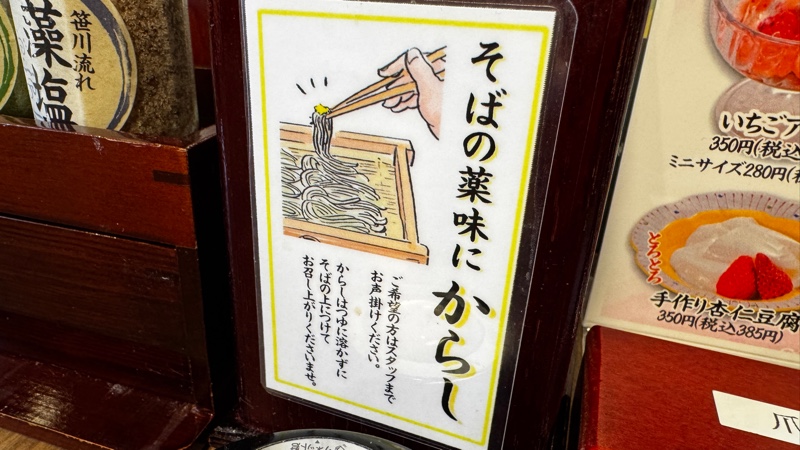 そばの薬味に からし
ご希望の方はスタッフまで
お声掛けください。
からしはつゆに溶かずに
そばの上につけて
お召し上がりくださいませ。
笹川流れ
藻塩
いちごア
350円(税込
ミニサイズ280円(税
とろとろ
手作り杏仁豆腐
350円(税込385円)
爪